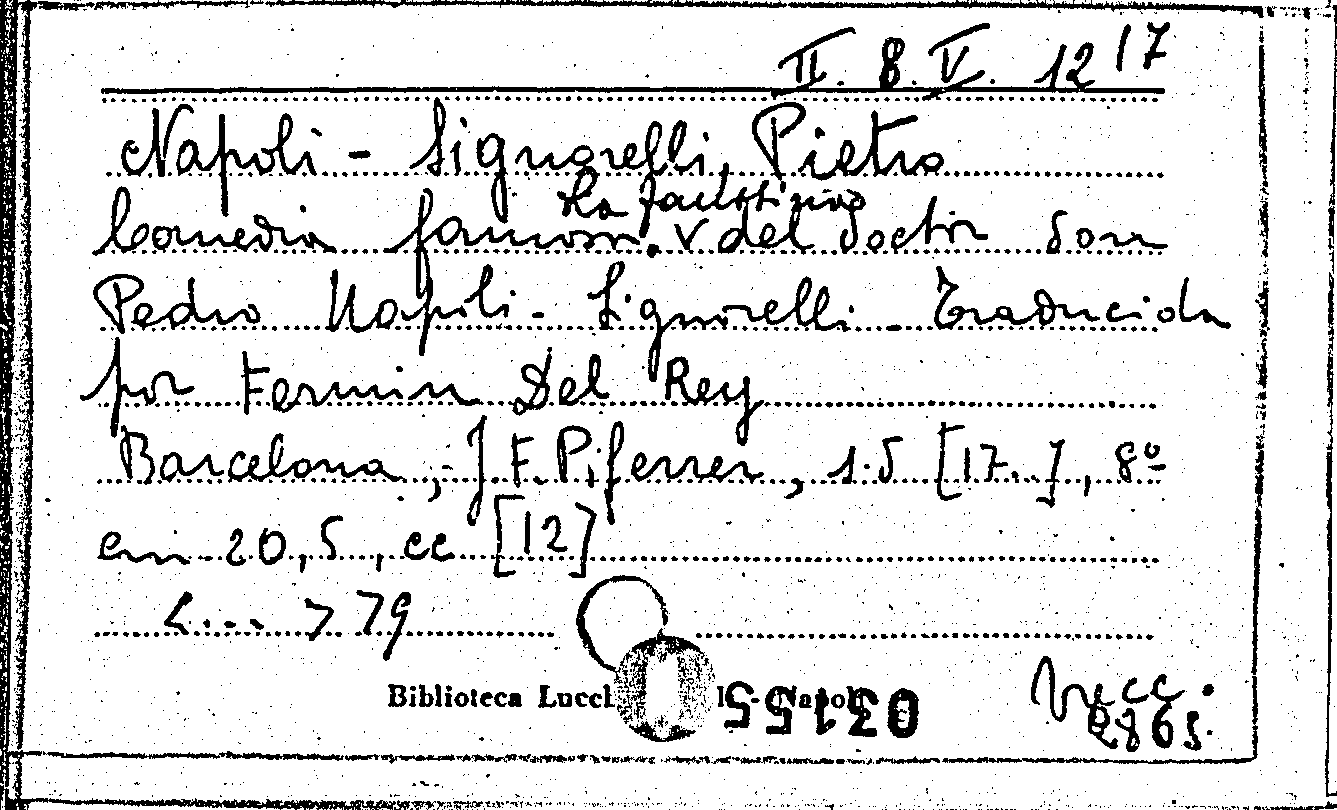 II. 8. V. 12 17
Napoli - Signorelli, Pietro
La faustina
Comedia famosa. V del doctor don
Pedro Napoli - Signorelli - Traducida
por Fermin Del Rey
Barcelona, J. F. Piferrer, s.d [17..], 8º
cm 20,5, cc [12]
<...> 79
Biblioteca Lucch - Napoli
03155 0
2865.